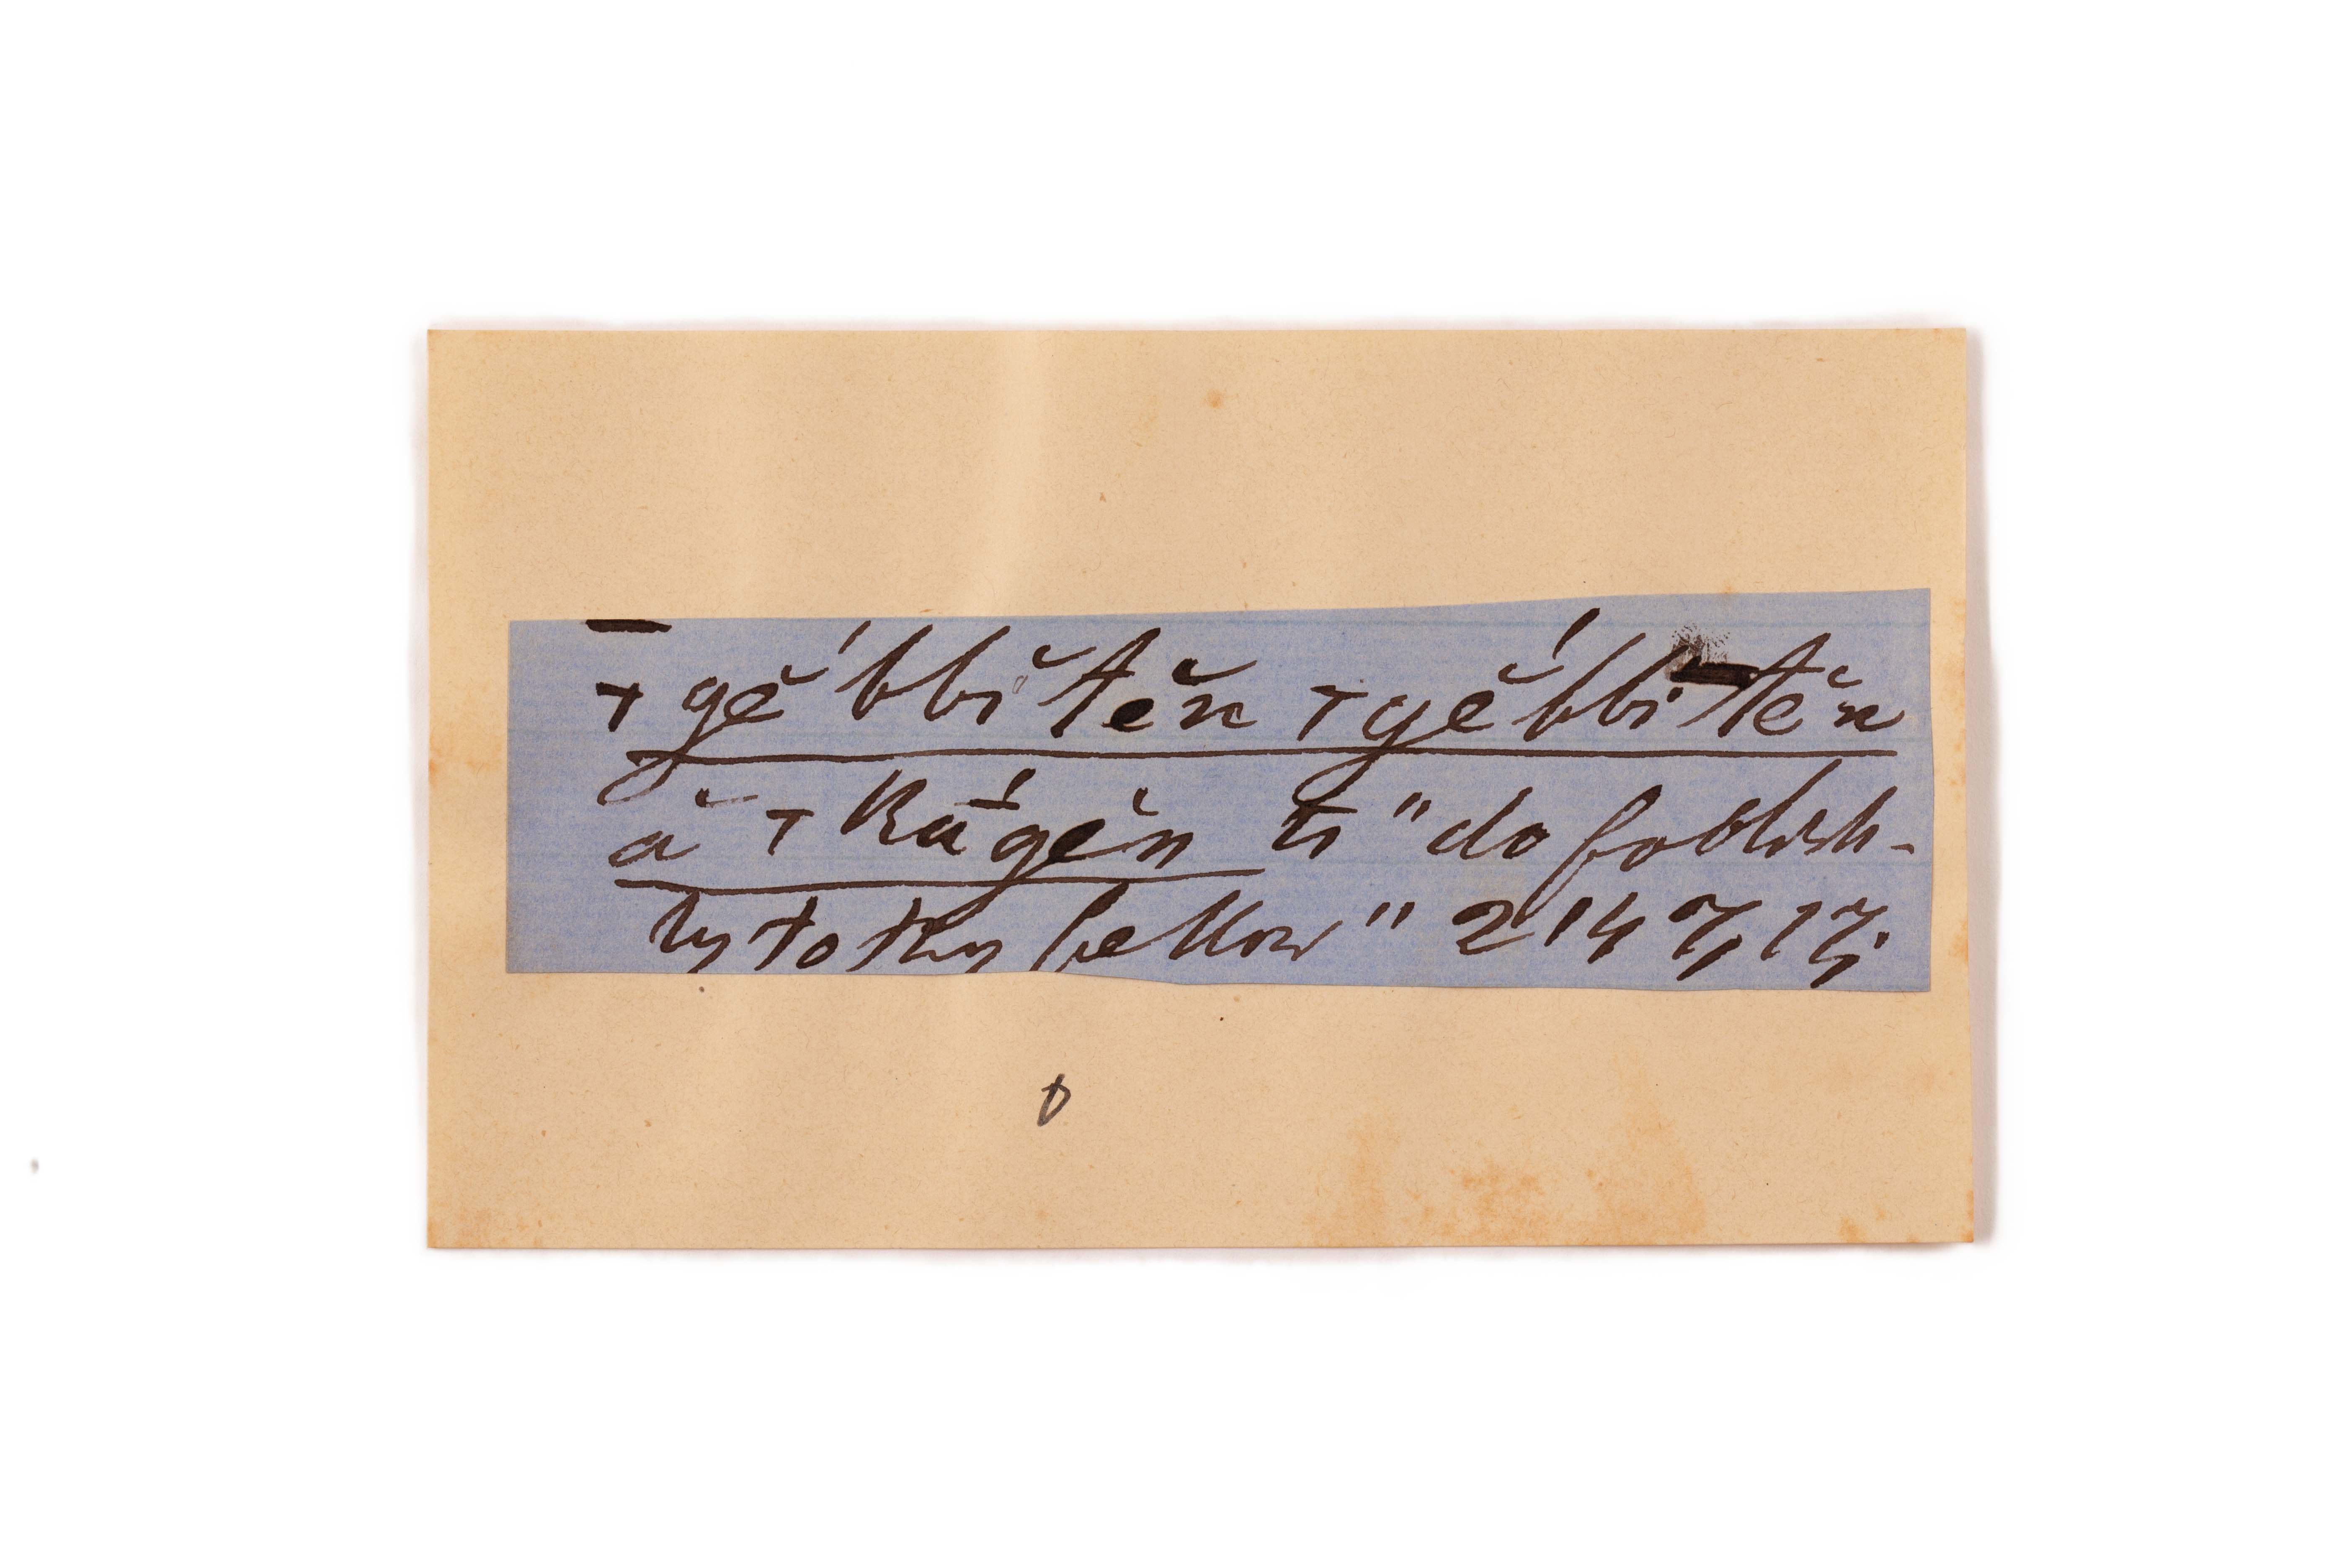 + gĕ́bbĭtĕn + gĕ́bbi-tĕn
ă + kā́gĕn ti "do foolish-
ly to thy fellow" 2147,17;